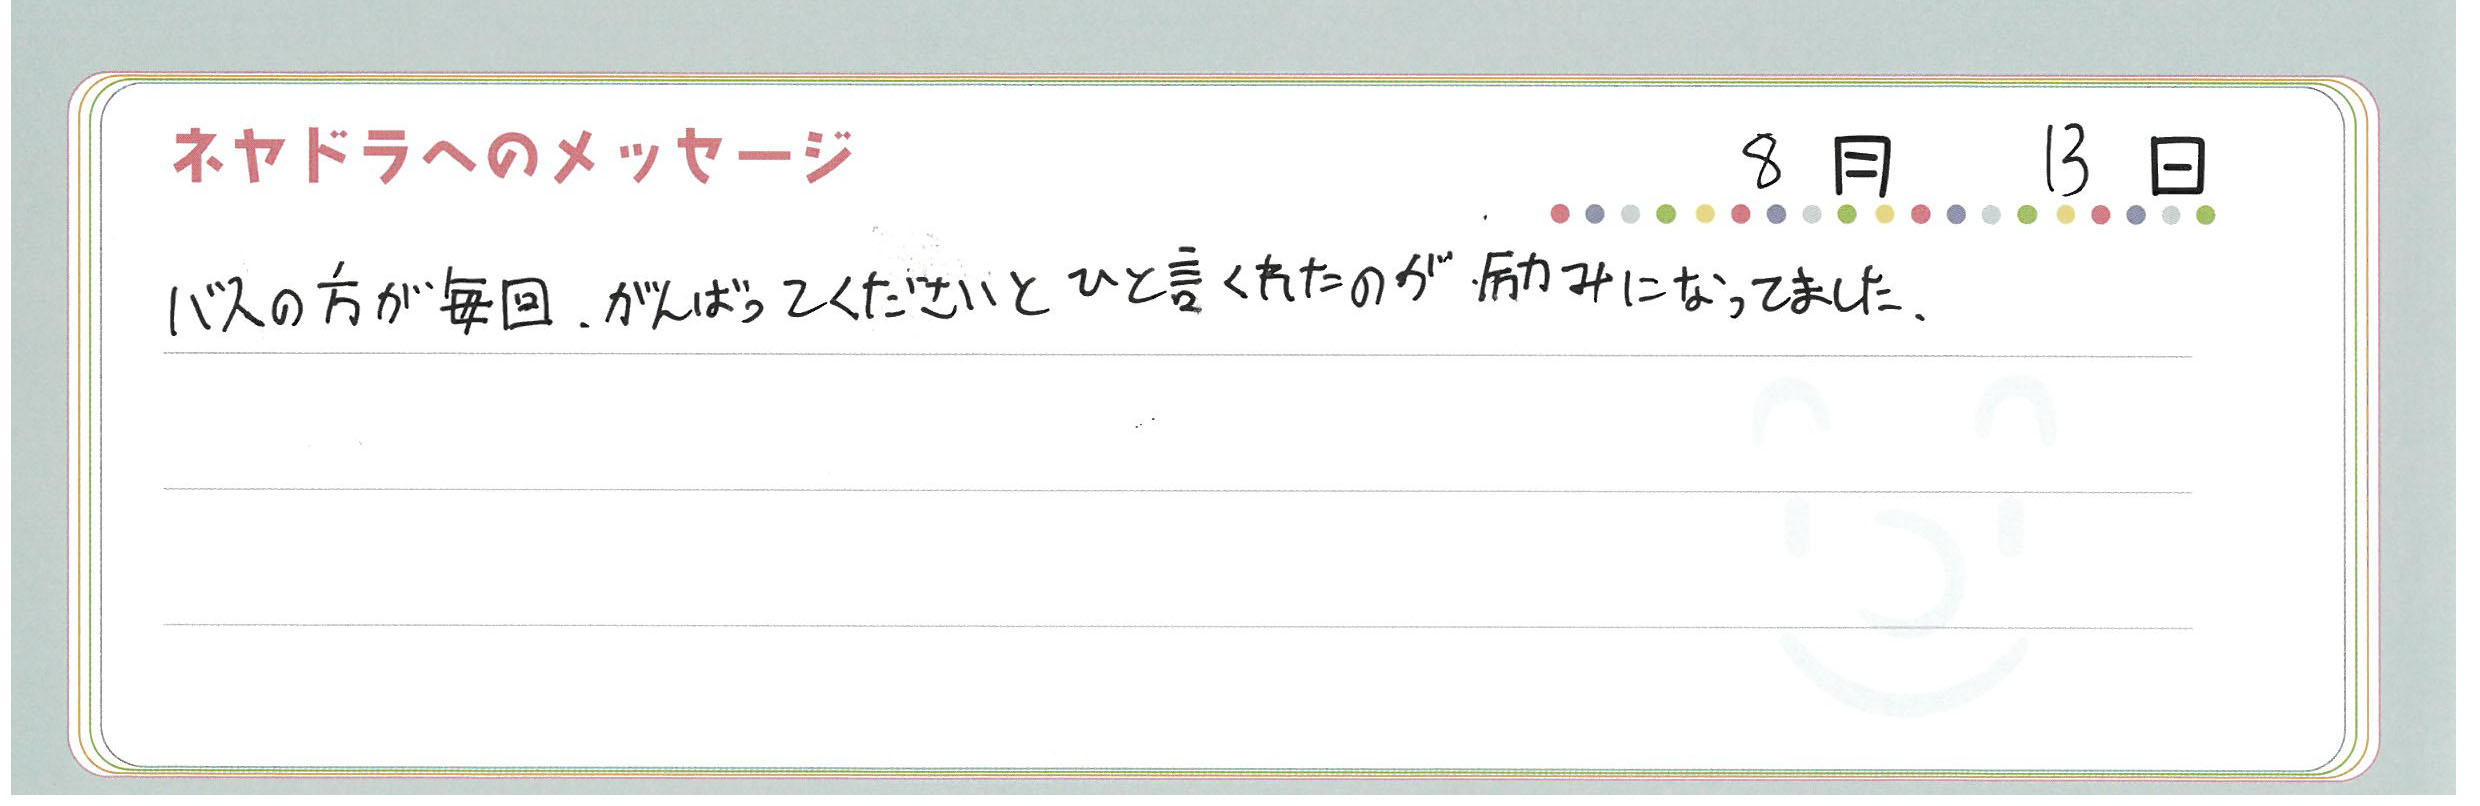 ネヤドラへのメッセージ
8月 13日
バスの方が毎回、がんばってくださいとひと言くれたのが励みになってました、